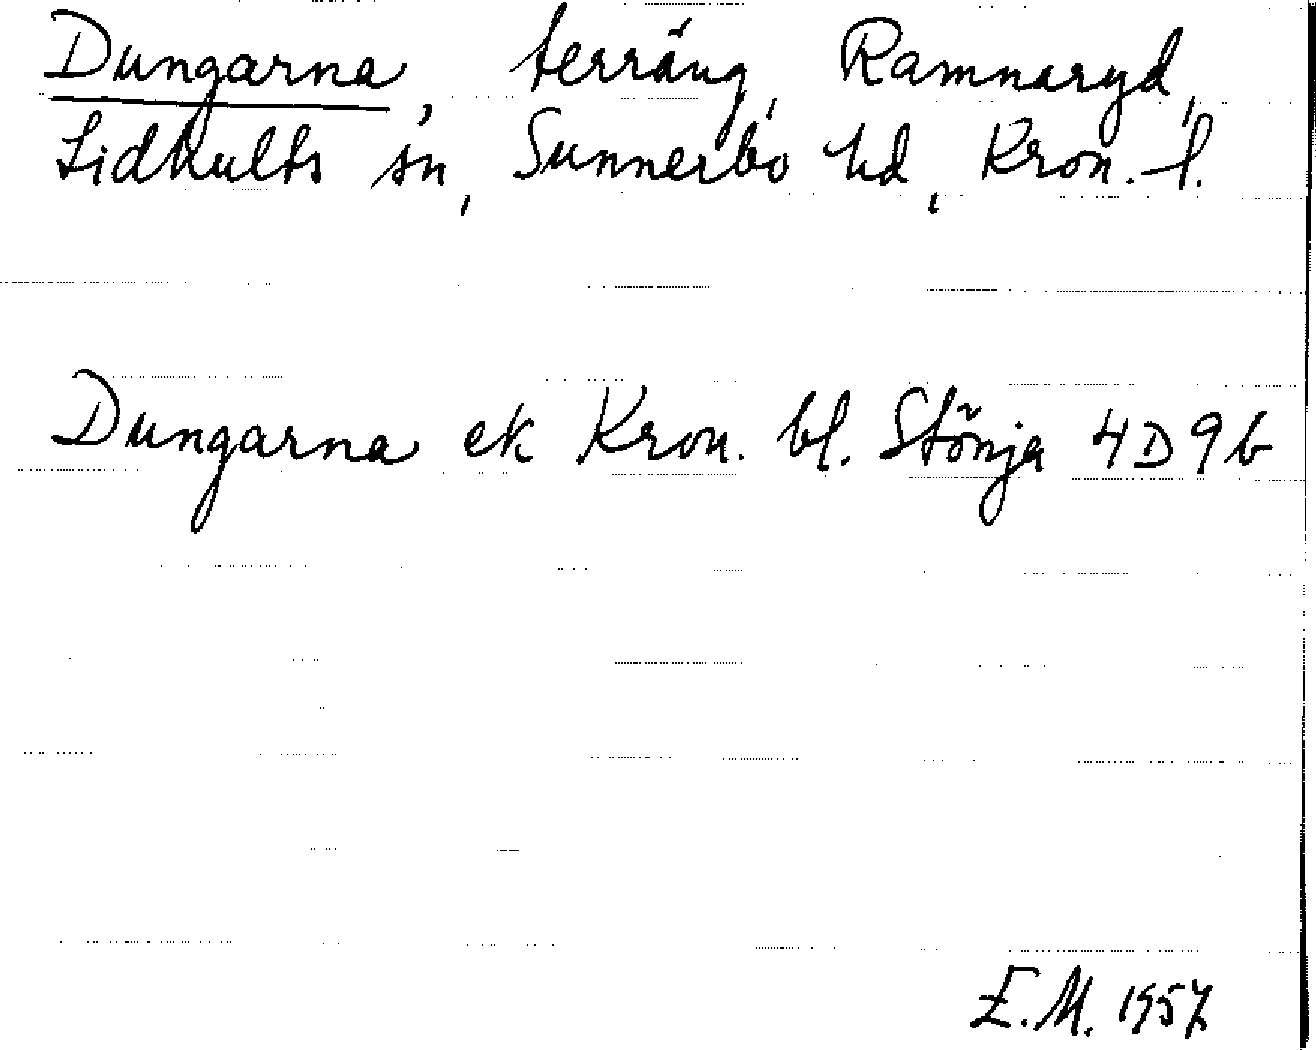 Dungarna, terräng, Ramnaryd,
Lidhults sn, Sunnerbo hd, Kron. l.
Dungarna ek Kron. bl. Stönja 4D9b
E.M. 1957